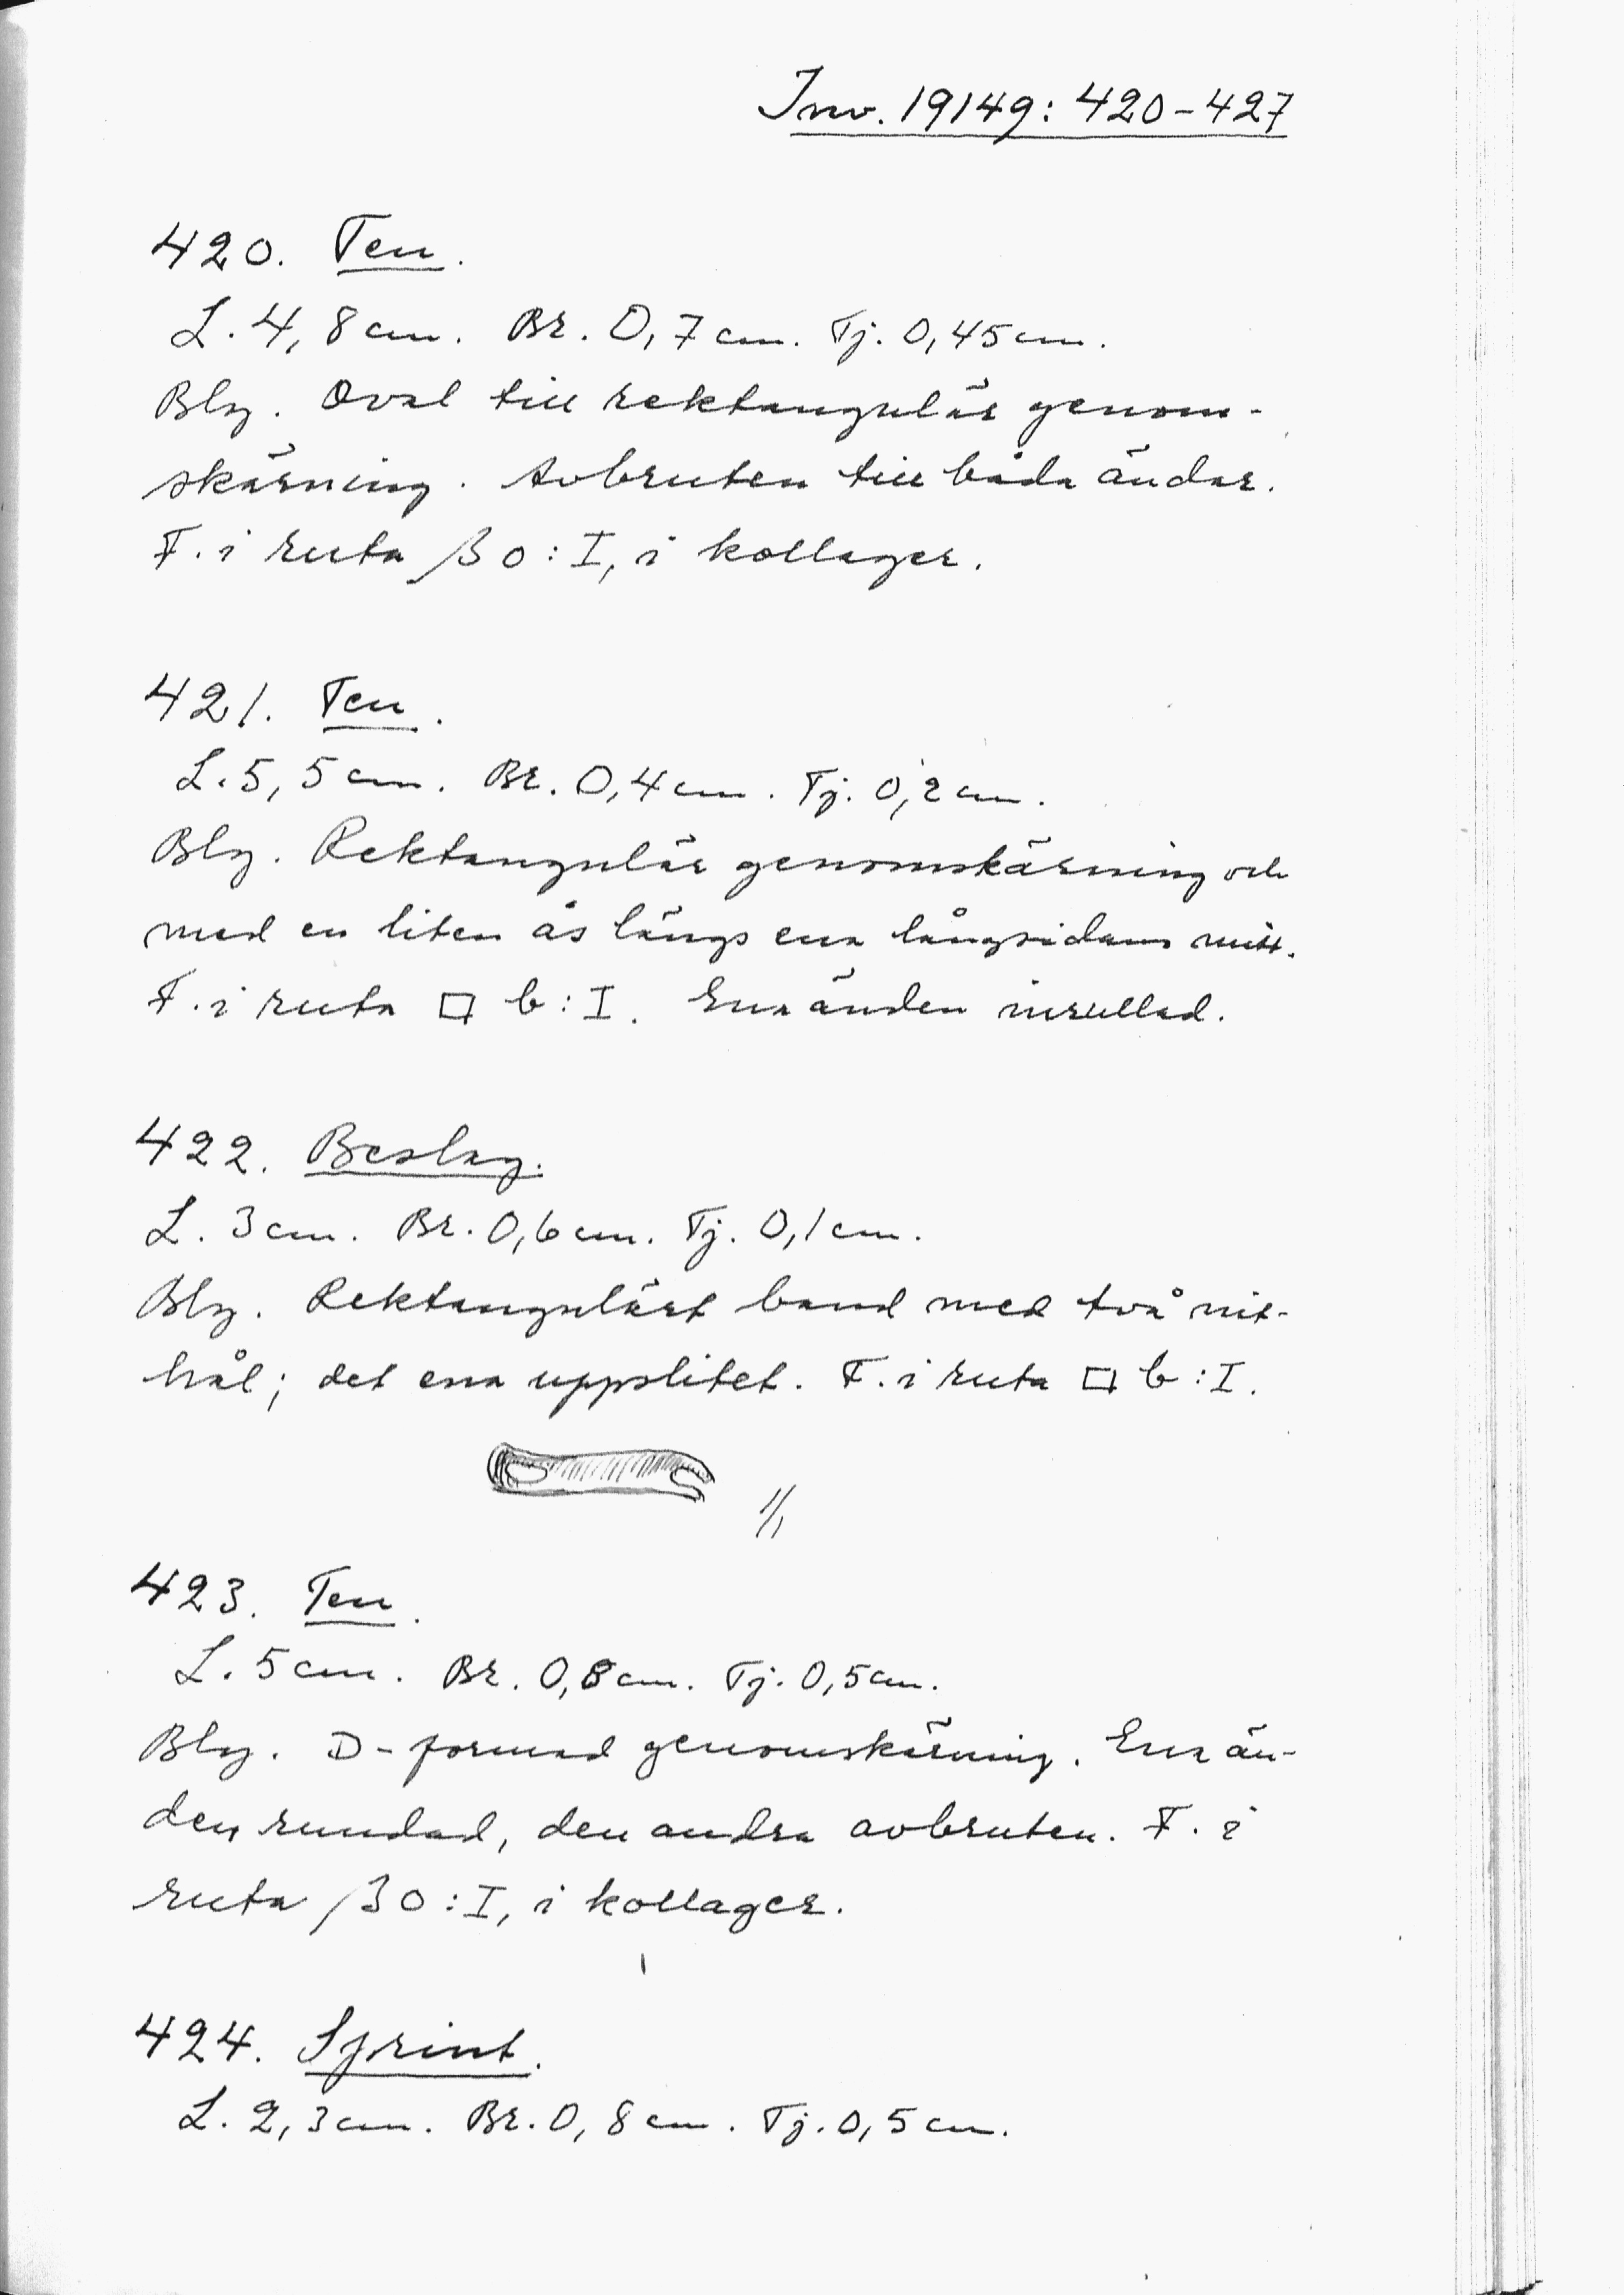 Inv. 19149: 420-427
420. Ten.
L. 4,8 cm. Br. 0,7 cm. Tj. 0,45 cm.
Bly. Oval till rektangulär genom-
skärning. Avbruten till båda ändar.
F. i ruta β 0 : I, i kollager.
421. Ten.
L. 5,5 cm. Br. 0,4 cm. Tj. 0,2 cm.
Bly. Rektangulär genomskärning och
med en liten ås längs ena långsidans mitt.
F. i ruta □ b : I. Ena änden inrullad.
422. Beslag.
L. 3 cm. Br. 0,6 cm. Tj. 0,1 cm.
Bly. Rektangulärt band med två nit-
hål; det ena uppslitet. F. i ruta □ b : I.
1/1
423. Ten.
L. 5 cm. Br. 0,8 cm. Tj. 0,5 cm.
Bly. D-formad genomskärning. Ena än-
den rundad, den andra avbruten. F. i
ruta β 0 : I, i kollager.
424. Sprint.
L. 2,3 cm. Br. 0,8 cm. Tj. 0,5 cm.